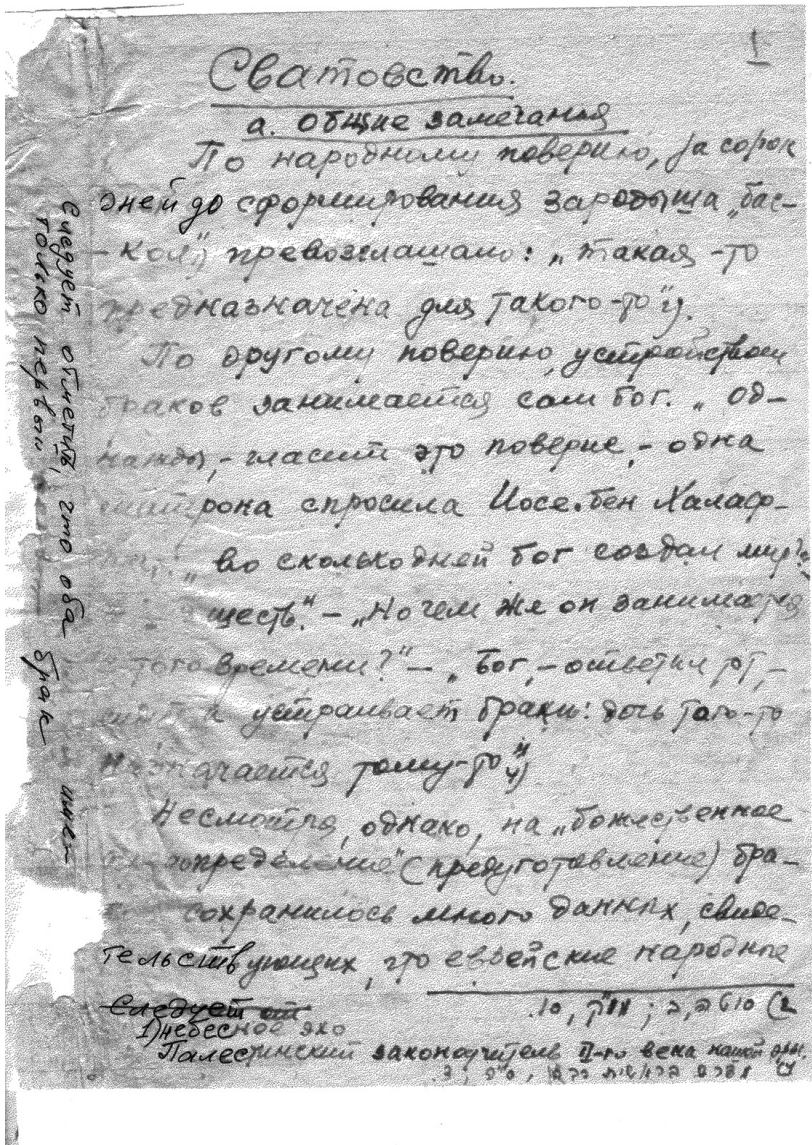 1
Сватовство.
а. общие замечания
По народному поверию, за сорок
дней до сформирования зародыша „бас-
-кол"1) превозглашало: „такая-то
предназначена для такого-то"2).
По другому поверию, устройством
браков занимается сам бог. „од-
нажды,- гласит это поверие,- одна
матрона спросила Иосе.бен Халаф-
„во сколько дней бог создал мир?"-
шесть". - „Но чем же он занимается
того времени?" - „Бог,- ответил тот,-
и устраивает браки: дочь того-то
назначается тому-то"4)
Несмотря, однако, на „божественное
определение" (предуготавление) бра-
сохранилось много данных, свиде-
тельствующих, что еврейские народные
2) סוטה ב, ב ; מו"ק,
Следует от
1) небесное эхо
Палестинский законоучитель II-го века нашей эры.
4) בראשית רבה
Следует отметить, что оба
только первый брак